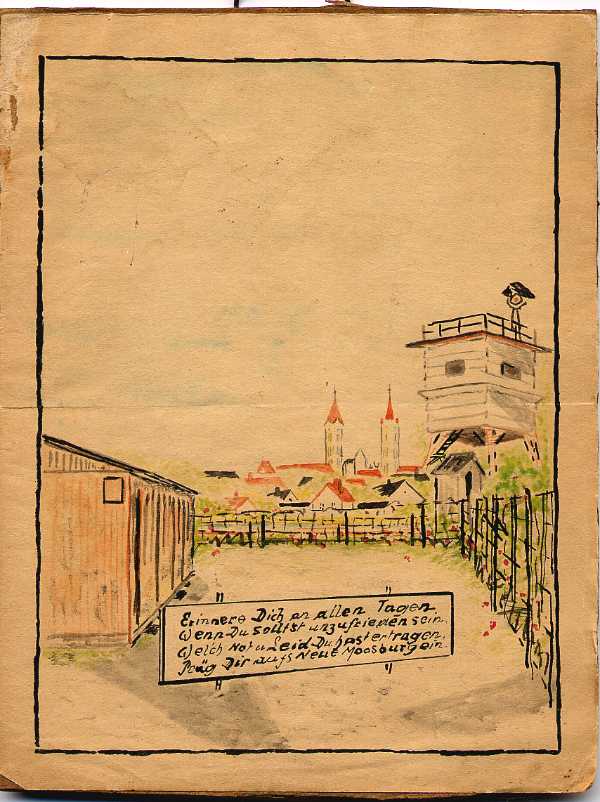 Erinnere Dich an allen Tagen,
Wenn Du solltst unzufrieden sein.
Welch Not u Leid Du hast ertragen.
Präg Dir aufs Neue Moosburg ein.